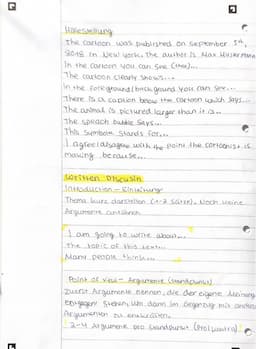 The cartoon was published on September 5th,
2018 in New York. The artist is Max
In the cartoon you can see (the)...
The cartoon clearly shows...
In the foreground/background you can see...
There is a caption below the cartoon which says...
The animal is pictured larger than it is...
The speach bubble says...
This symbol stands for...
I agree/disagree with the point the cartoonist is
making because...
Written Discusin
Introduction - Einleitung
Thema kurz darstellen (1-2 Sätze), Noch keine
Argumente
I am going to write about...
The topic of this text...
Many people think...
Point of view - Argumente (Standpunkt)
Zuerst Argumente nennen, die der eigene Meinung
entgegen stehen, um dann im Gegenzug mit
Argumenten zu
2-4 Argumente pro Standpunkt (Pro/contra)